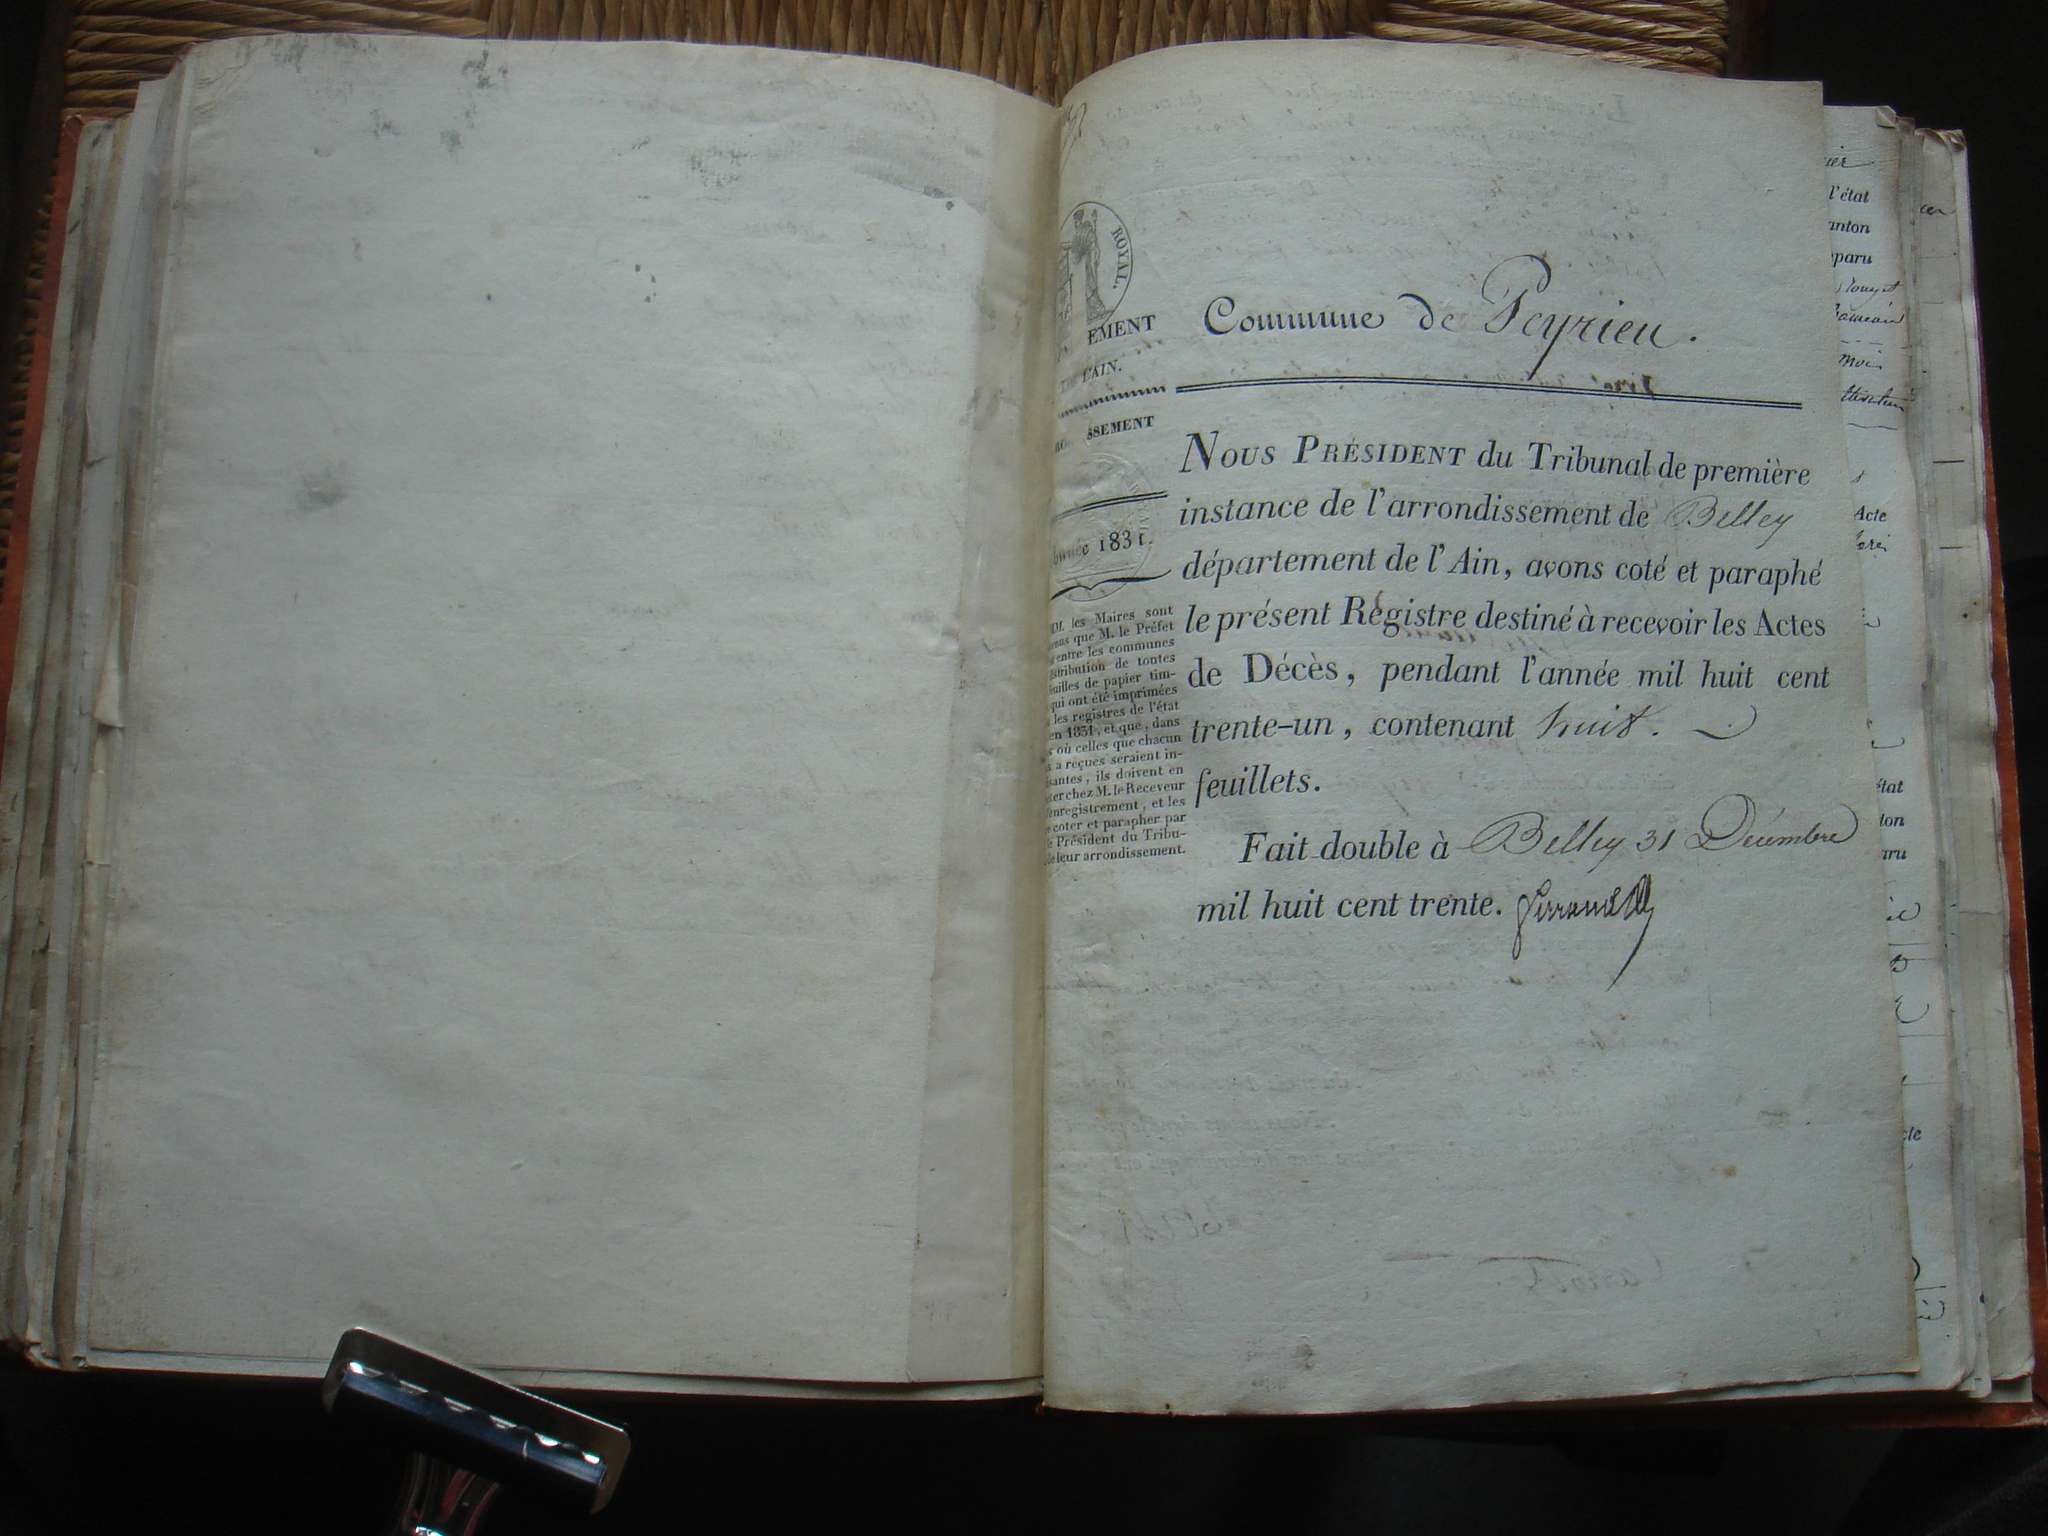 ROYAL.
EMENT
L'AIN.
SSEMENT
1831.
les Maires sont
que M. le Préfet
entre les communes
stribution de toutes
euilles de papier tim-
qui ont été imprimées
les registres de l'état
en 1831, et que, dans
où celles que chacun
a reçues seraient in-
santes, ils doivent en
ter chez M. le Receveur
enregistrement, et les
coter et parapher par
Président du Tribu-
de leur arrondissement.
Commune de Peyrieu.
NOUS PRÉSIDENT du Tribunal de première
instance de l'arrondissement de Belley
département de l'Ain, avons coté et paraphé
le présent Registre destiné à recevoir les Actes
de Décès, pendant l'année mil huit cent
trente-un, contenant huit.
feuillets.
Fait double à Belley 31 Décembre
mil huit cent trente.
l'état
anton
paru
moi
Acte
état
ton
aru
cte